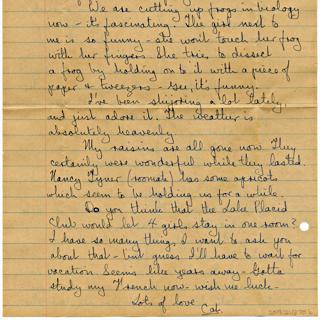 We are cutting up frogs in biology
now - it's fascinating. The girl next to
me is so funny - she won't touch her frog
with her fingers. She tries to dissect
a frog by holding on to it with a piece of
paper & tweezers - Gee, it's funny.
I've been skijoring a lot lately,
and just adore it. The weather is
absolutely heavenly.
My raisins are all gone now. They
certainly were wonderful while they lasted.
Nancy Tyner (roomie) has some apricots
which seem to be holding us for a while.
Do you think that the Lake Placid
Club would let 4 girls stay in one room?
I have so many things I want to ask you
about that - but guess I'll have to wait for
vacation. Seems like years away - Gotta
study my French now - wish me luck -
Lots of love
Cat.